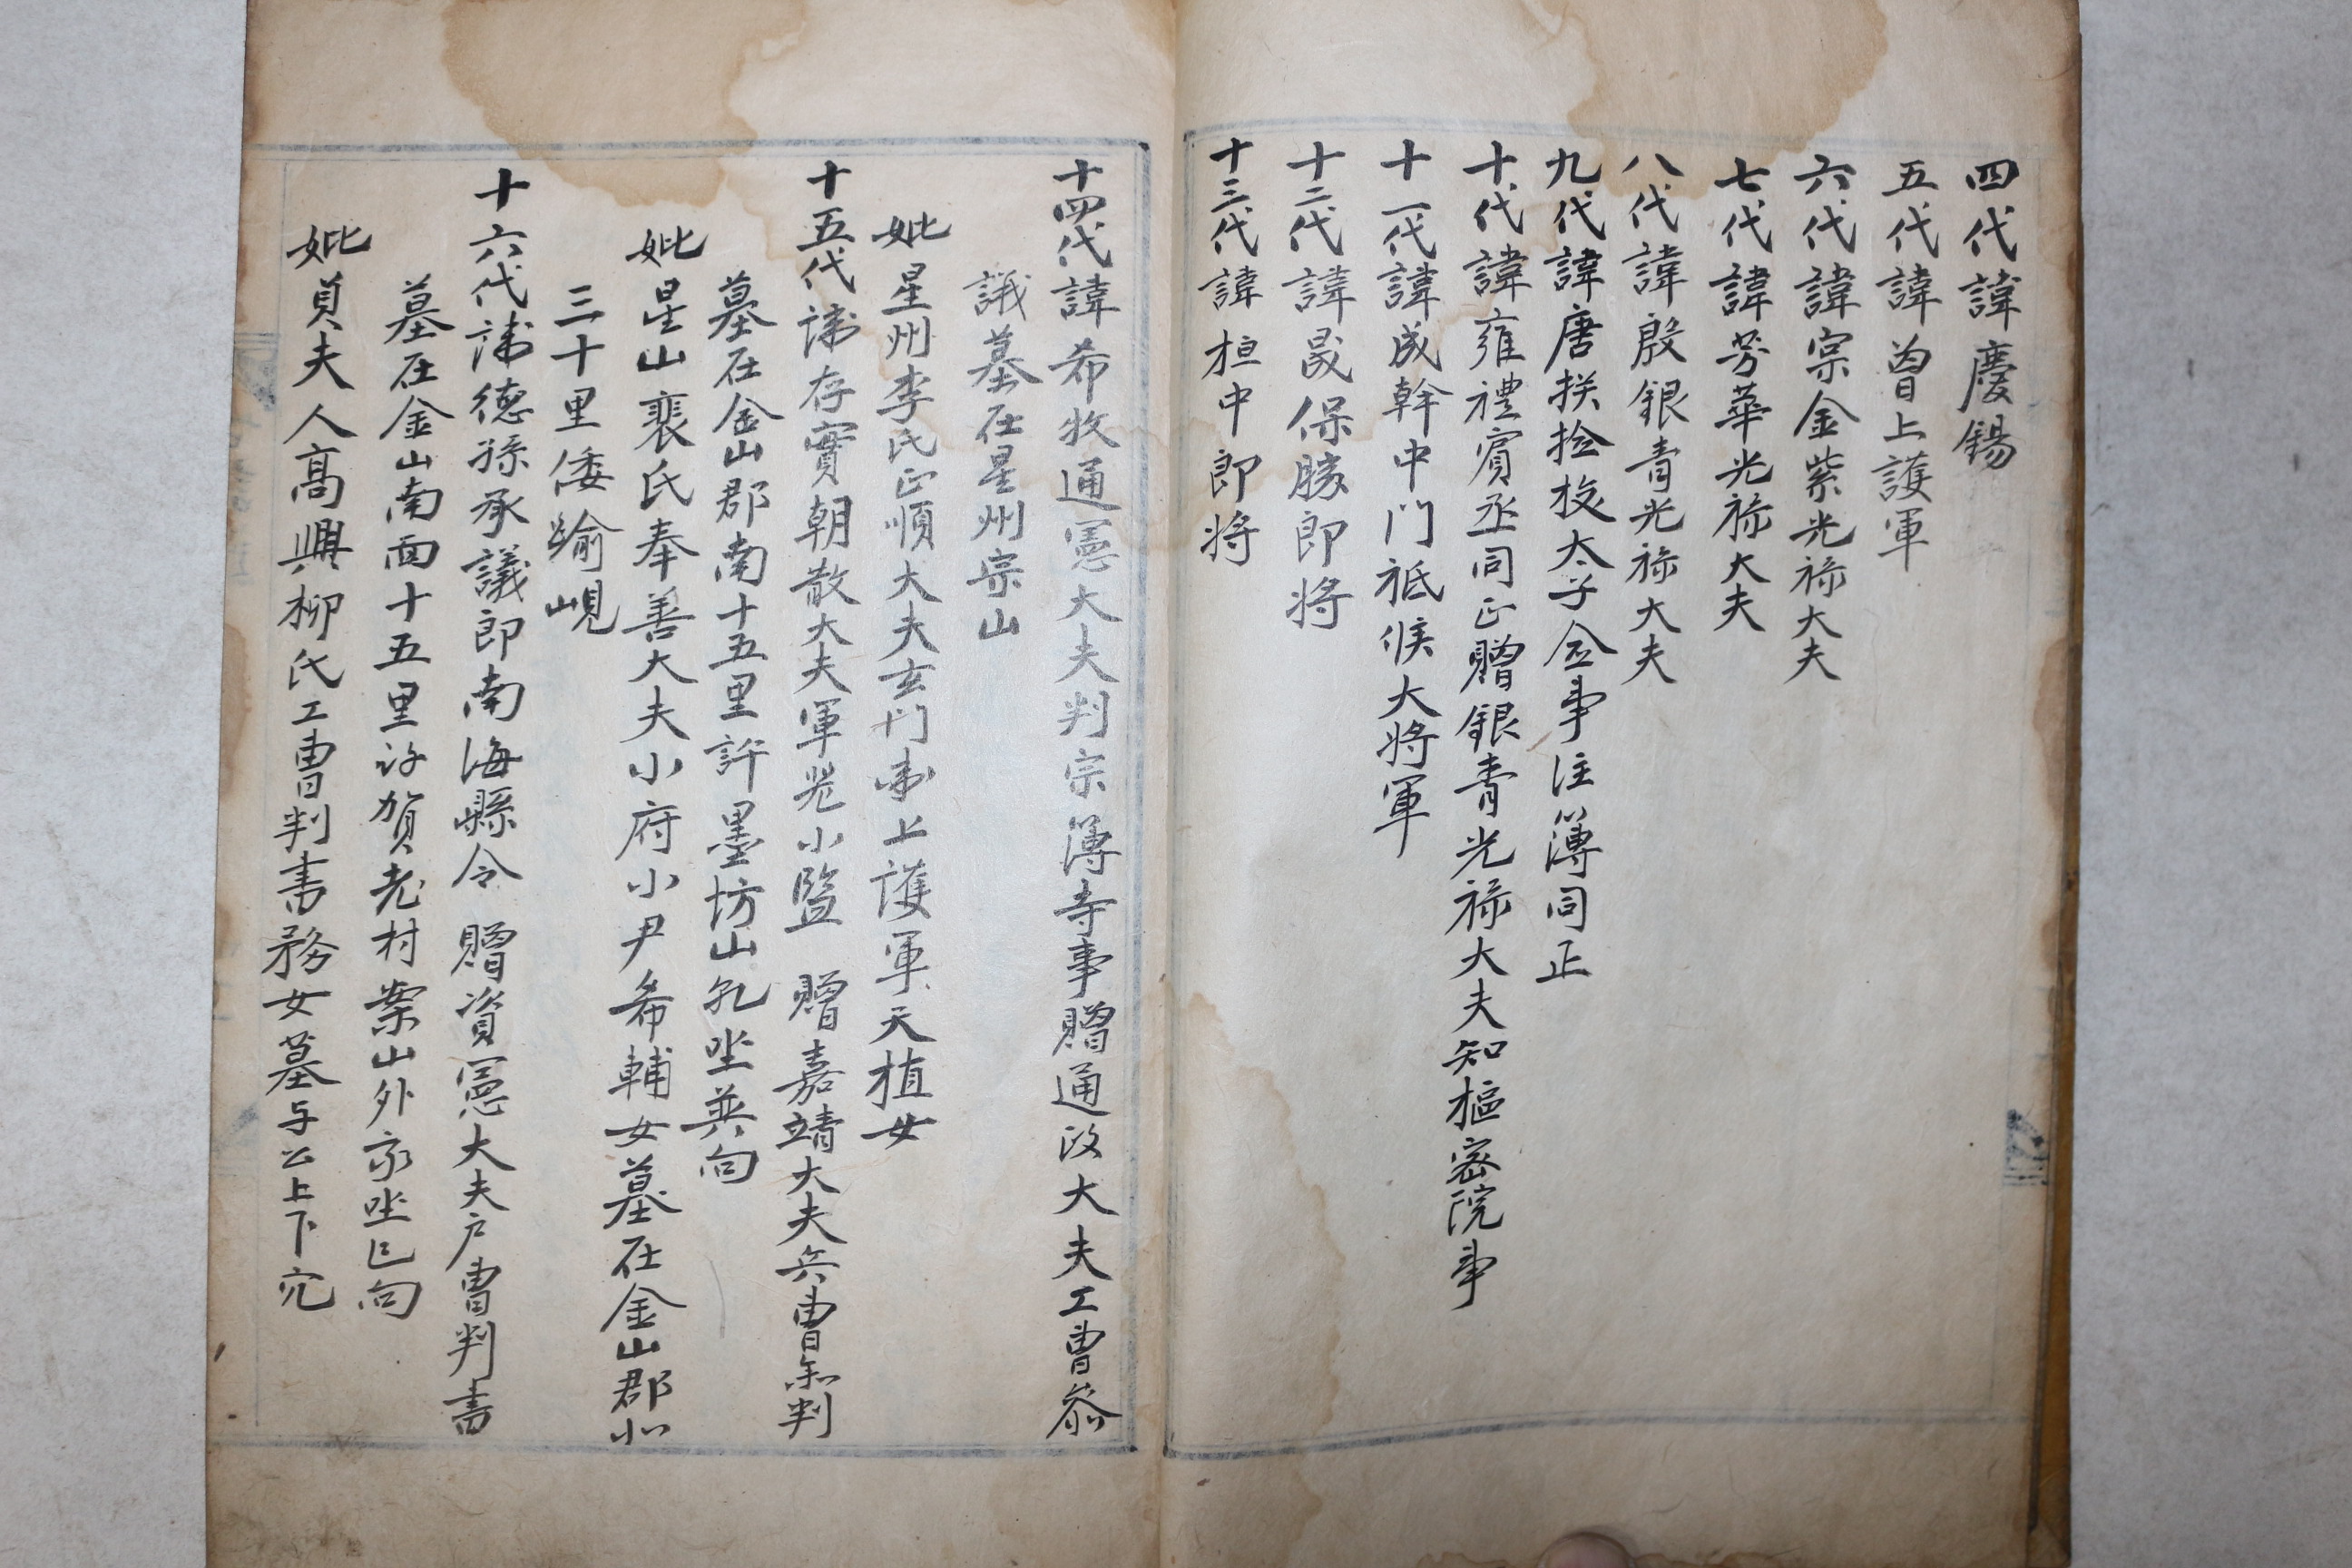 四代諱慶錫
五代諱曾上護軍
六代諱宗金紫光祿大夫
七代諱芳華光祿大夫
八代諱殷銀青光祿大夫
九代諱唐捡校太子僉事注簿同正
十代諱雍禮賓丞同正贈銀青光祿大夫知樞密院事
十一代諱成幹中門祗候大將軍
十二代諱晟保勝郎將
十三代諱桓中郎將
十四代諱希牧通憲大夫判宗簿寺事贈通政大夫工曹叅
議墓在星州宗山
妣星州李氏正順大夫上護軍天植女
十五代諱存實朝散大夫軍器小監 贈嘉靖大夫兵曹叅判
墓在金山郡南十五里許墨坊山乳坐向
妣星山裵氏奉善大夫小府小尹希輔女墓在金山郡北
三十里倭踰峴
十六代諱德孫承議郎南海縣令 贈資憲大夫戶曹判書
墓在金山南面十五里許賀老村案山外亥坐巳向
妣貞夫人高興柳氏工曹判書務女墓与公上下穴